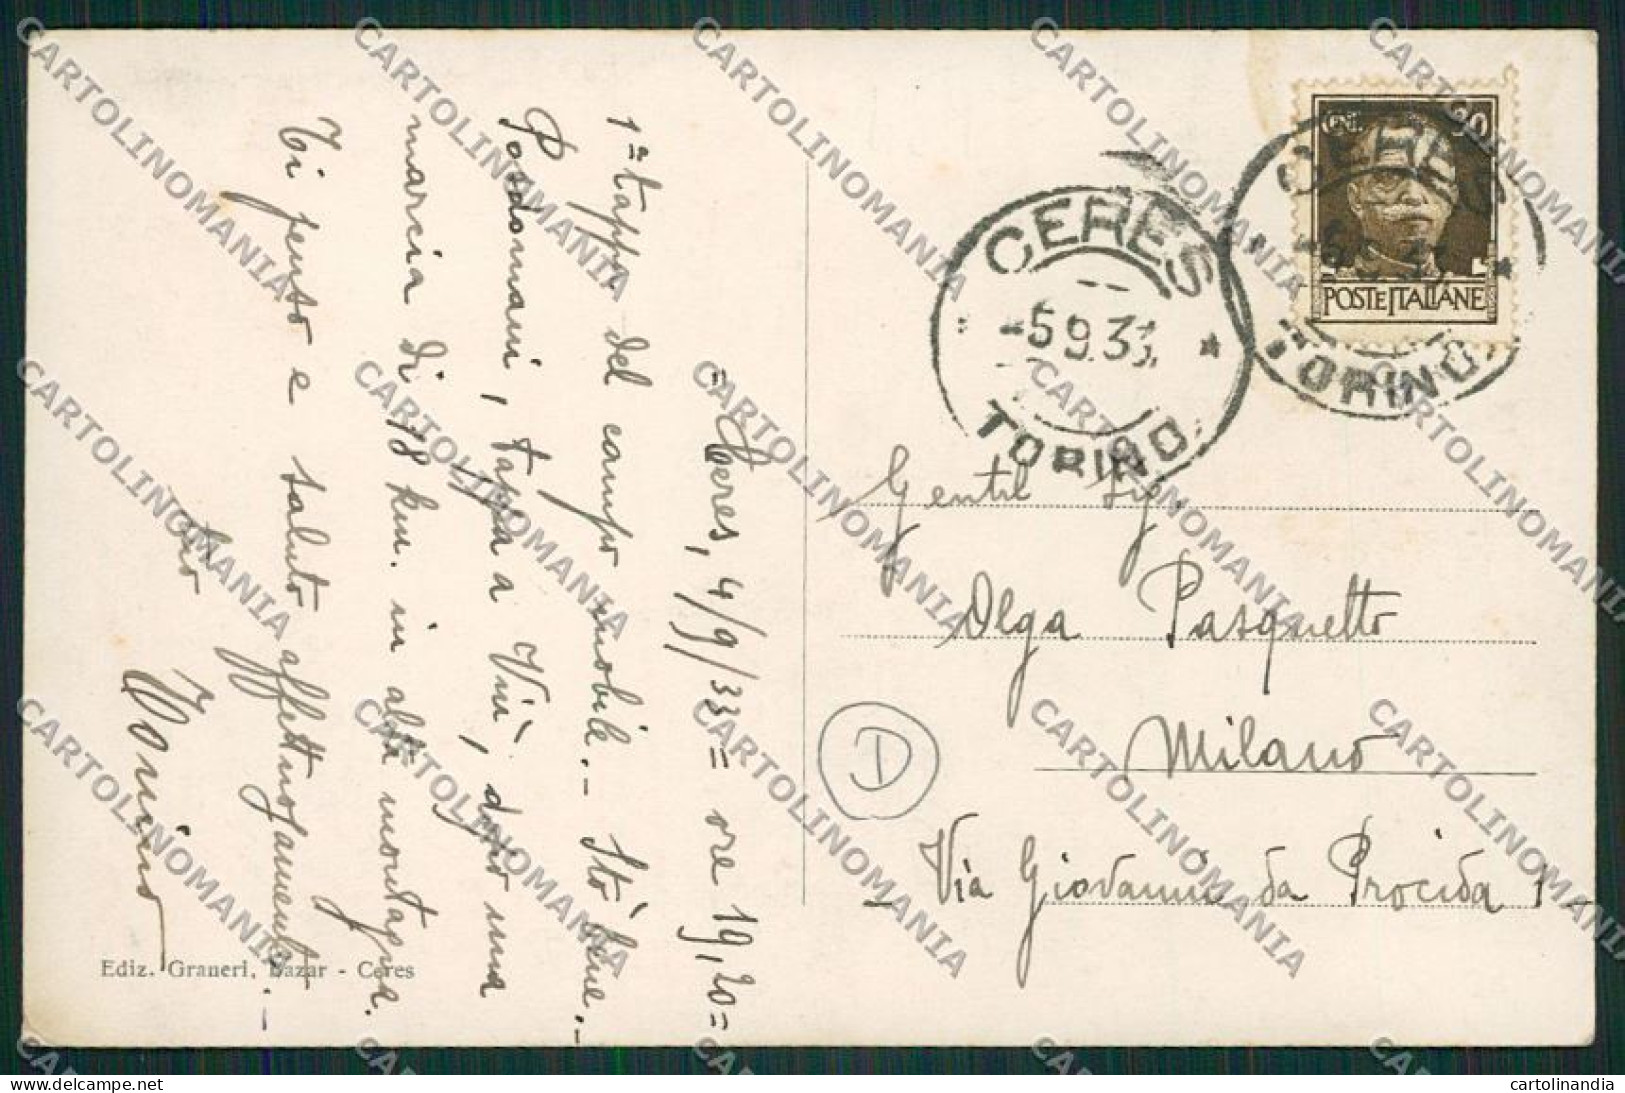 = Ceres, 4/9/33 = ore 19,20=
1ª tappa del campo mobile.- Stò bene.-
Posdomani, tappa a Viù, dopo una
marcia di 48 km. in alta montagna.
Ti penso e saluto affettuosamente.-
Tuo
Tonino
Ediz. Graneri, Bazar - Ceres
CERES
-5 9.33
TORINO
CERES
TORINO
CENT. 30
POSTE ITALIANE
Gentil Sig.
Olga Pasquetto
Milano
Via Giovanni da Procida 1
D
CARTOLINOMANIA
cartolinandia